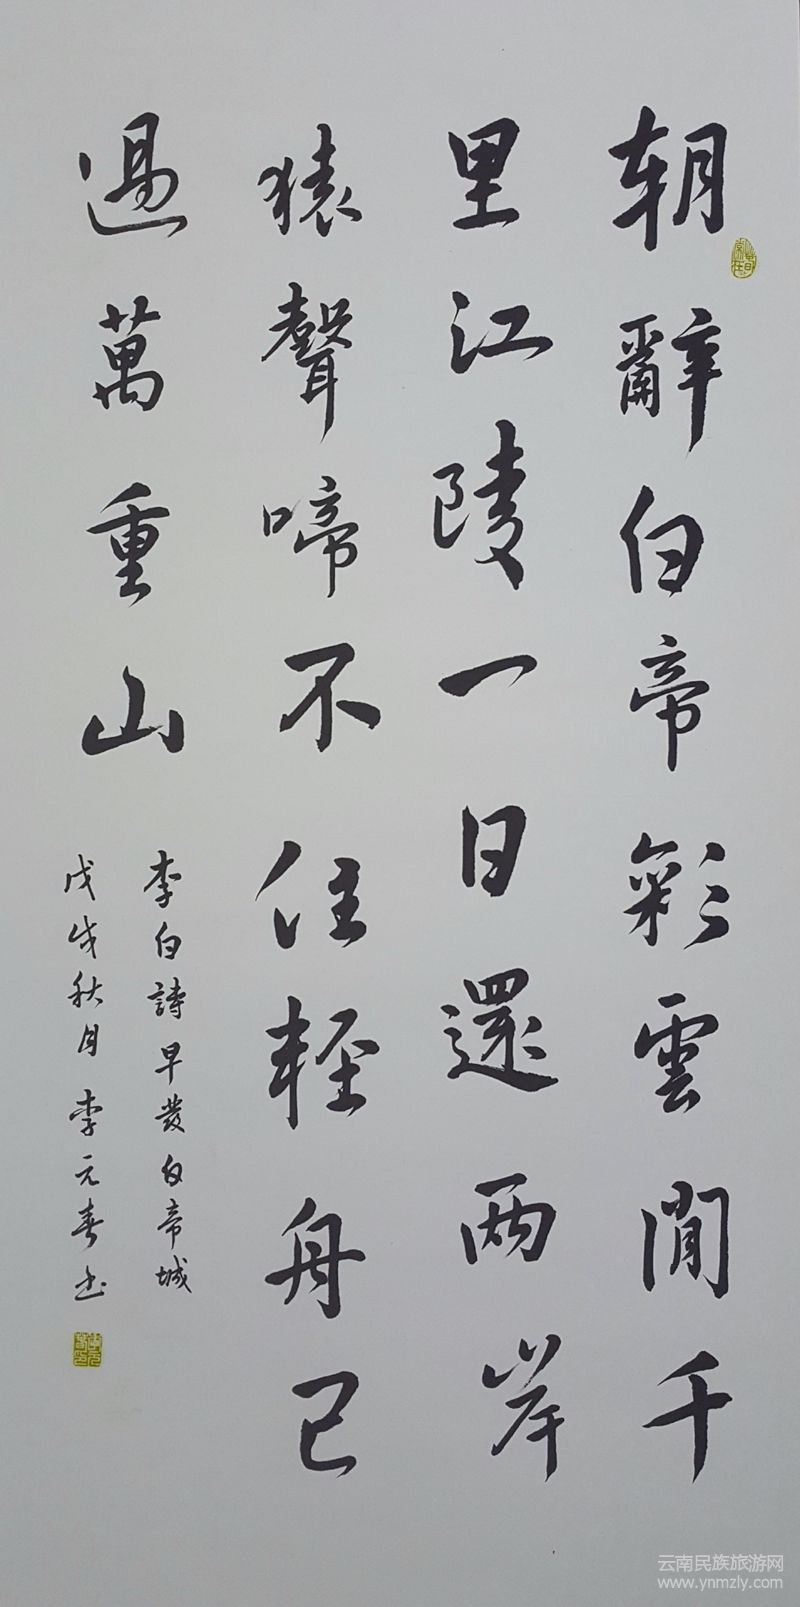 朝辭白帝彩雲間千
里江陵一日還兩岸
猿聲啼不住輕舟已
過萬重山
李白詩早發白帝城
戊戌秋月李元春书
云南民族旅游网
www.ynmzly.com